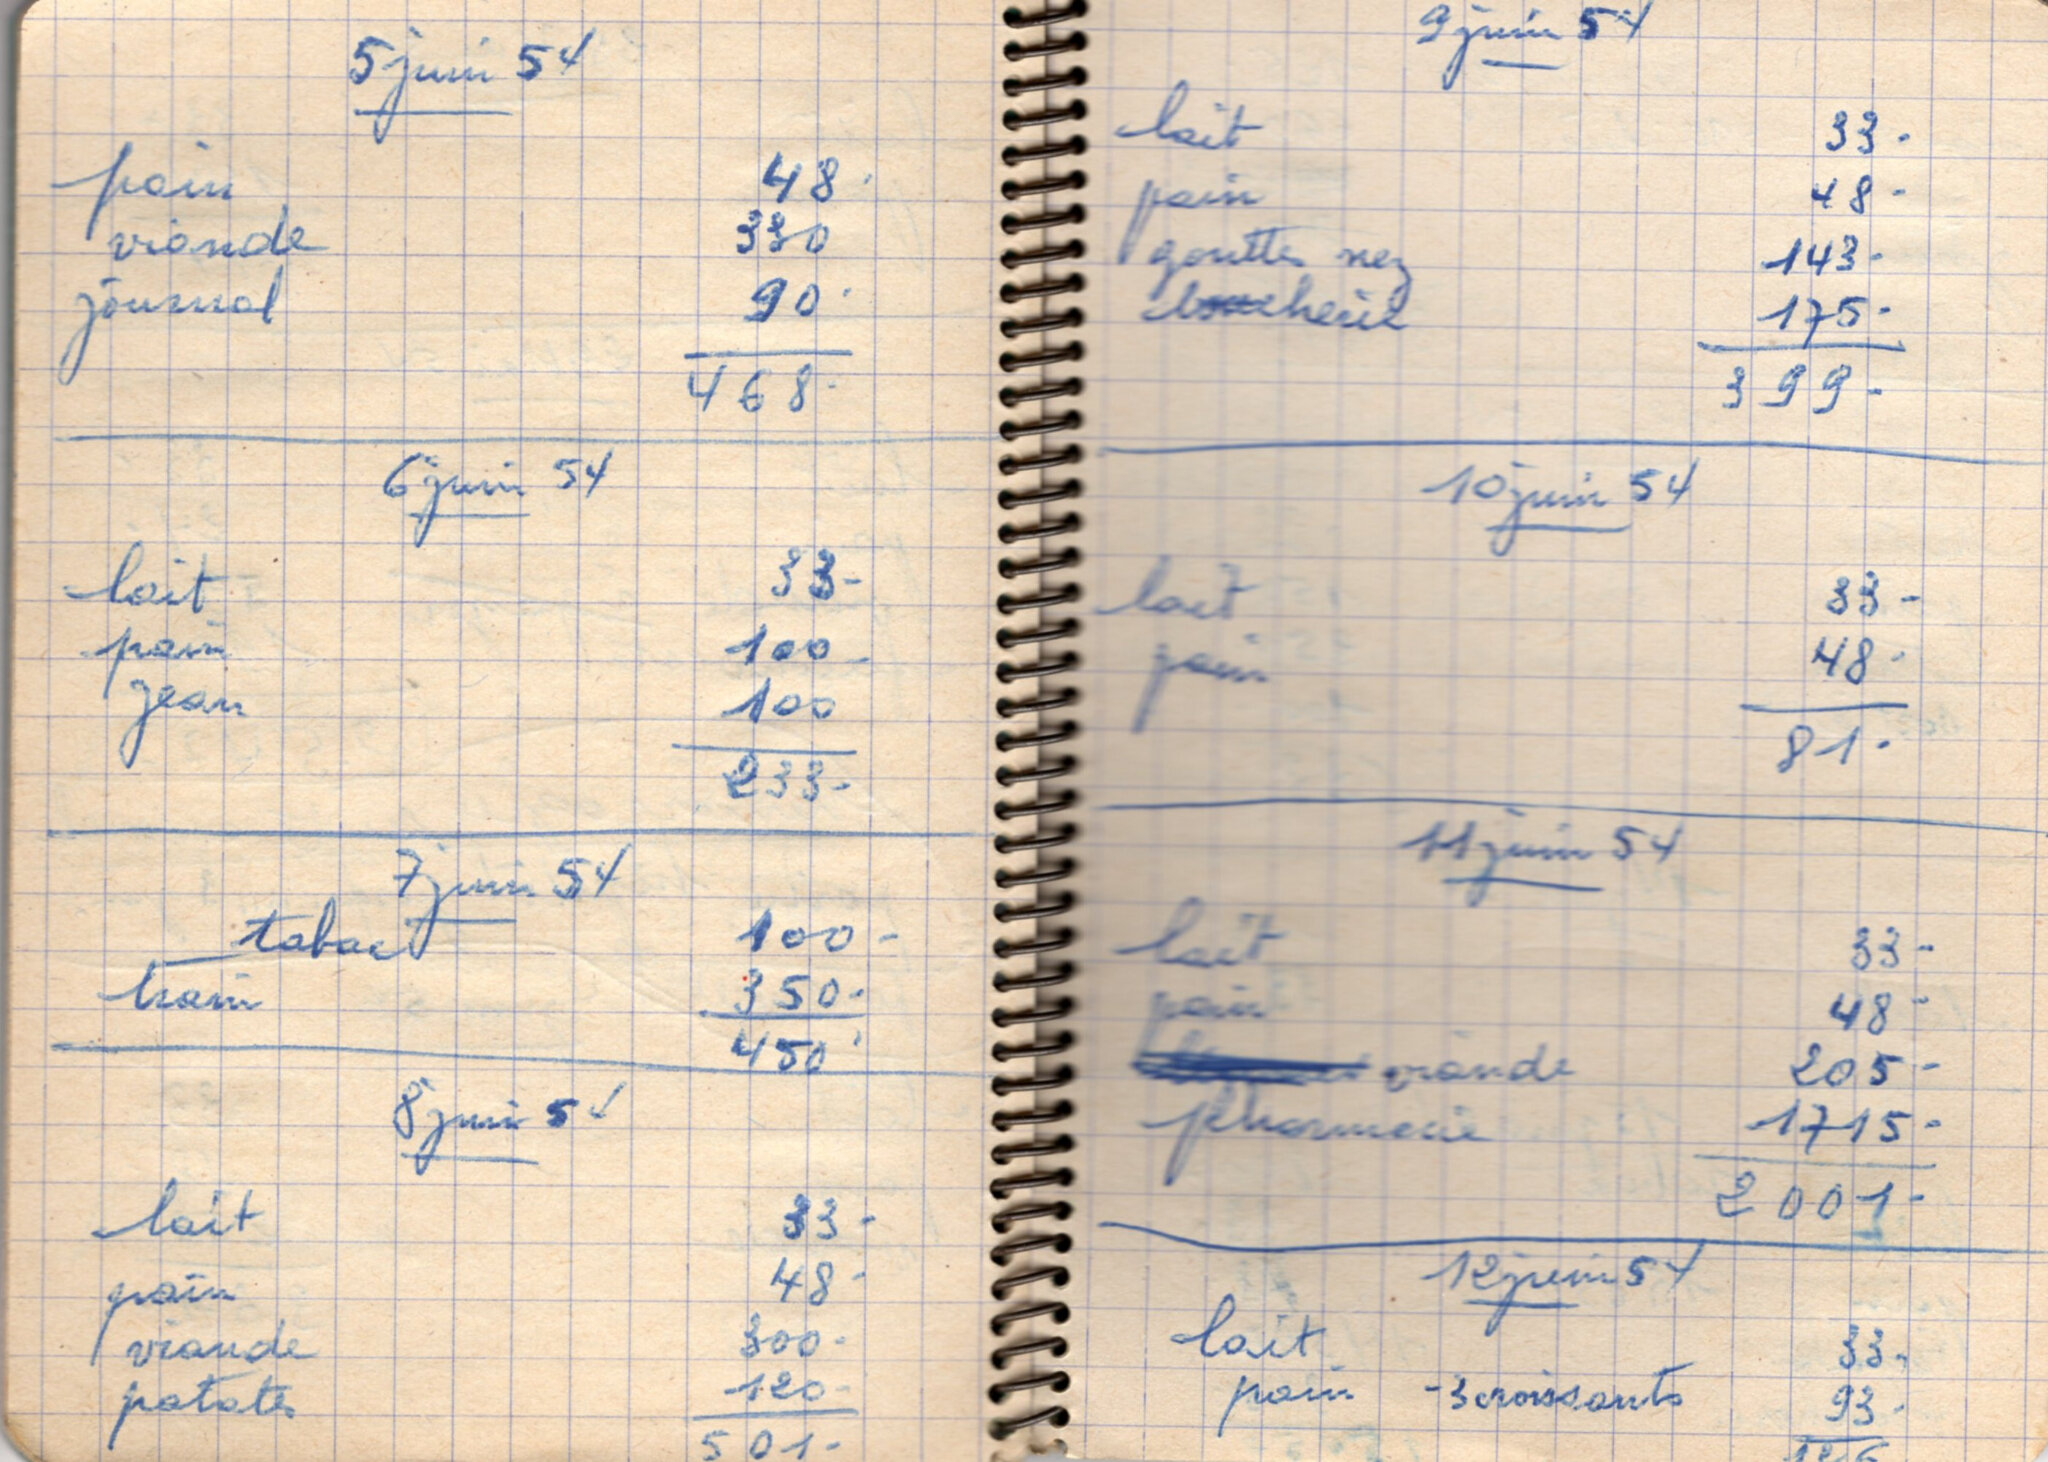 5 juin 54
pain 48.
viande 330
journal 90.
468.
6 juin 54
lait 33-
pain 100-
Jean 100
233-
7 juin 54
tabac 100-
train 350-
450
8 juin 54
lait 33-
pain 48-
viande 300-
patates 120-
501-
9 juin 54
lait 33-
pain 48-
gouttes nez 143-
boucherie 175-
399-
10 juin 54
lait 33-
pain 48-
81-
11 juin 54
lait 33-
pain 48-
viande 205-
pharmacie 1715-
2001-
12 juin 54
lait 33-
pain -3 croissants 93-